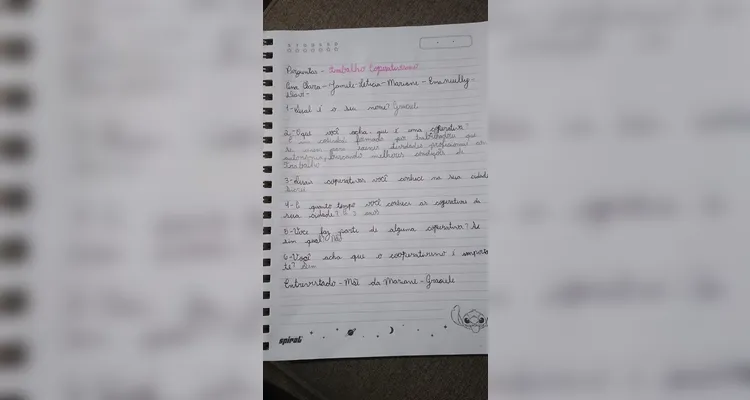 Perguntas - trabalho Cooperativismo
Ana Clara - Jamile - Leticia - Mariane - Emanuelly -
1 - Qual é o seu nome? Graciele
2 - O que você acha que é uma cooperativa?
É um formado por trabalhadores que
se unem para exercer atividades profissionais
buscando melhores condições de
trabalho
3 - Quais cooperativas você conhece na sua cidade
Sicredi
4 - A quanto tempo você conhece as cooperativas da
sua cidade? A 3 anos
5 - Você faz parte de alguma cooperativa? Se
sim qual? Não
6 - Você acha que o cooperativismo é importa
te? Sim
Entrevistado - Mãe da Mariane - Graciele
spiral